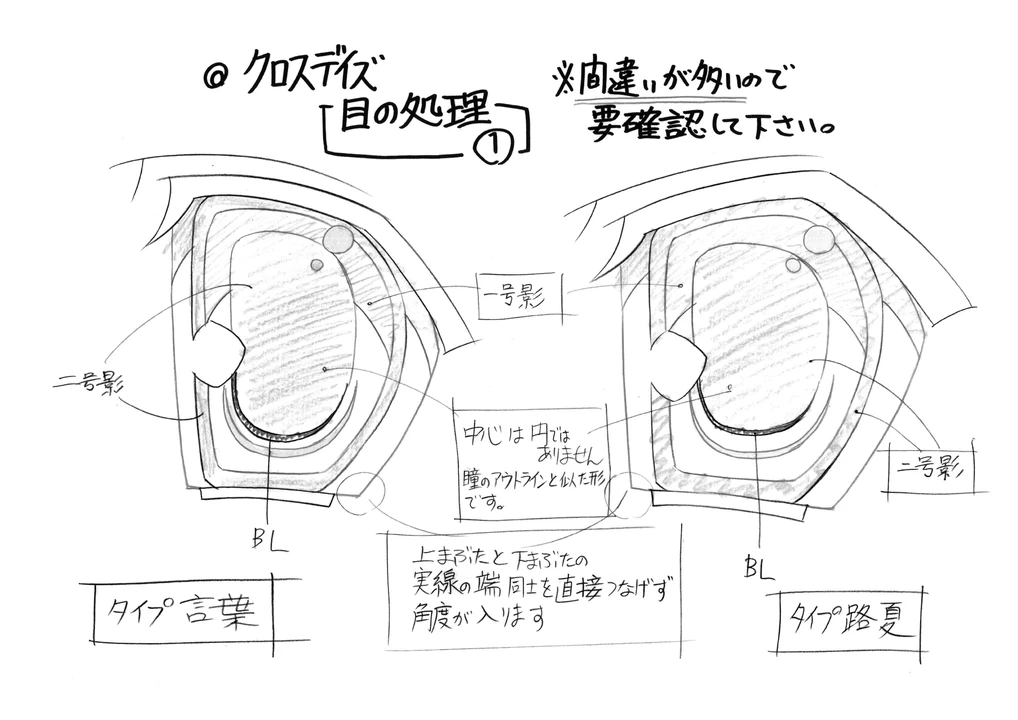 @ クロスデイズ
目の処理
①
※間違いが多いので
要確認して下さい。
一号影
二号影
中心は円では
ありません
瞳のアウトラインと似た形
です。
二号影
BL
BL
上まぶたと下まぶたの
実線の端同士を直接つなげず
角度が入ります
タイプ言葉
タイプ路夏